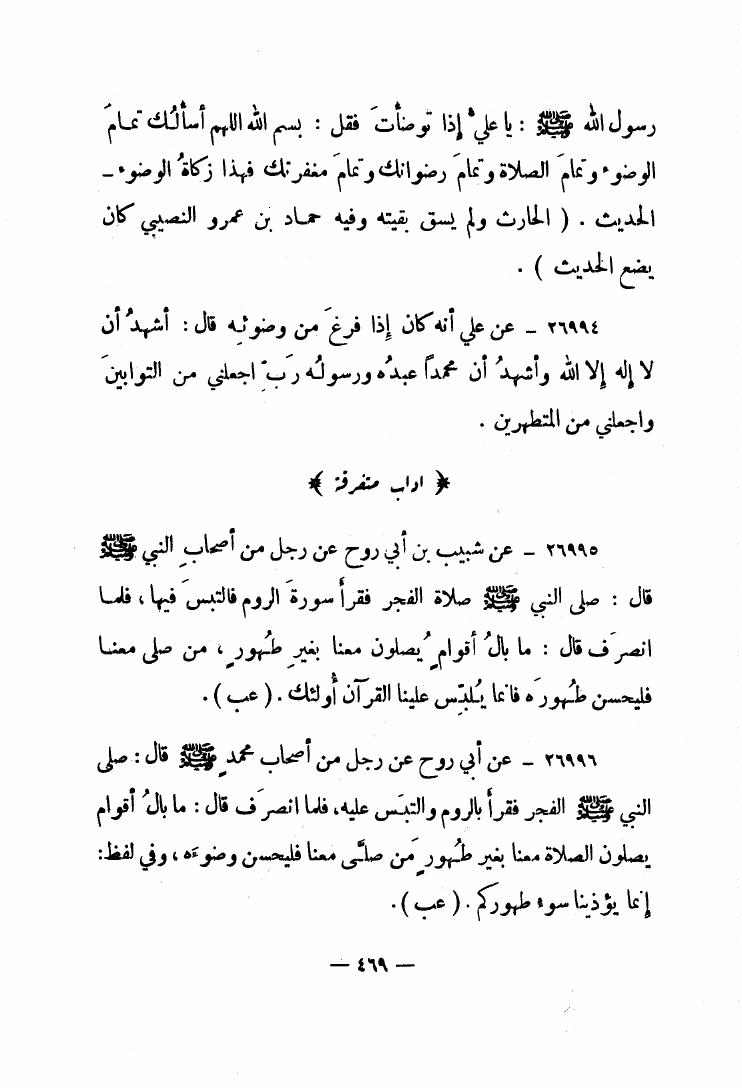 رسول الله ﷺ : يا عليُّ إذا توضأتَ فقل : بسم الله اللهم أسألُك تمامَ
الوضوء وتمامَ الصلاة وتمامَ رضوانك وتمامَ مغفرتك فهذا زكاةُ الوضوء ـ
الحديث . ( الحارث ولم يسق بقيته وفيه حماد بن عمرو النصيبي كان
يضع الحديث ) .
٢٦٩٩٤ ـ عن علي أنه كان إذا فرغَ من وضوئه قال : أشهدُ أن
لا إله إلا الله وأشهدُ أن محمداً عبدُه ورسولُه رَبِّ اجعلني من التوابينَ
واجعلني من المتطهرين .
﴿ اداب متفرقة ﴾
٢٦٩٩٥ ـ عن شبيب بن أبي روح عن رجل من أصحابِ النبي ﷺ
قال : صلى النبي ﷺ صلاة الفجر فقرأ سورةَ الروم فالتبسَ فيها ، فلما
انصرَف قال : ما بالُ أقوامٍ يُصلون معنا بغيرِ طُهورٍ ، من صلى معنا
فليحسن طُهورَه فانما يُلبِّس علينا القرآن أُولئك . ( عب ) .
٢٦٩٩٦ ـ عن أبي روح عن رجل من أصحاب محمدٍ ﷺ قال : صلى
النبي ﷺ الفجر فقرأ بالروم والتبَس عليه، فلما انصرَف قال : ما بالُ أقوام
يصلون الصلاة معنا بغير طُهورٍ مَن صلَّى معنا فليحسن وضوءَه ، وفي لفظ:
إنما يؤذينا سوء طهوركم . ( عب ) .
— ٤٦٩ —